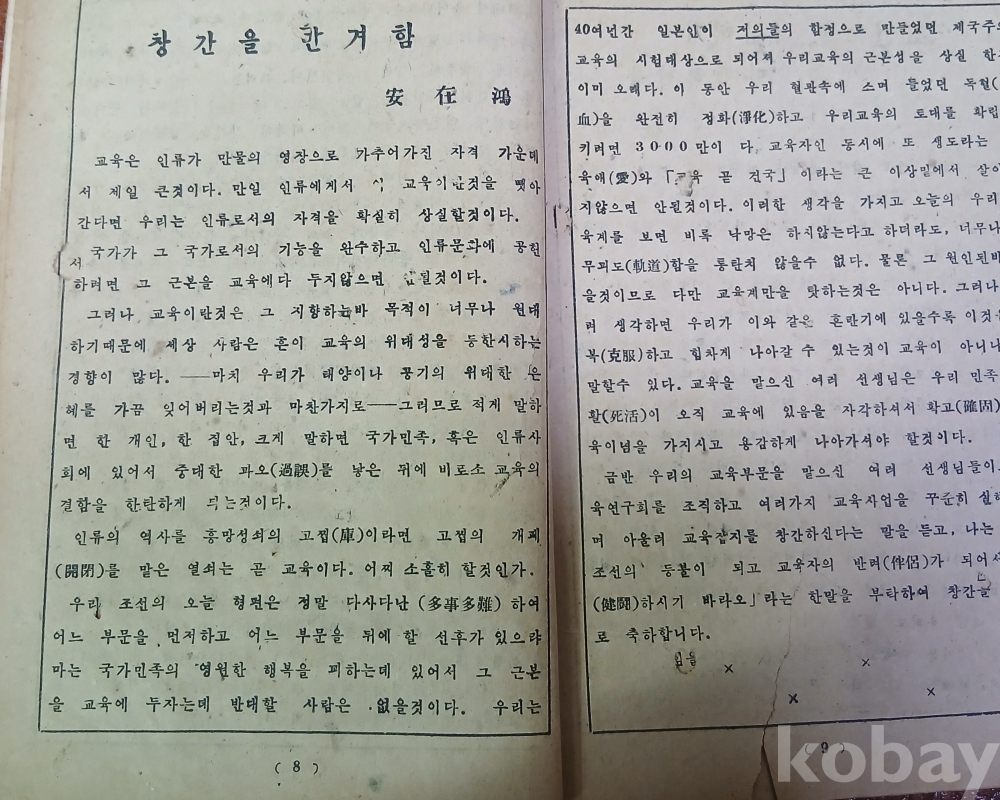 창간을 반겨함
安在鴻
교육은 인류가 만물의 영장으로 가추어가진 자격 가운데
서 제일 큰것이다. 만일 인류에게서 이 교육이란것을 뺏아
간다면 우리는 인류로서의 자격을 확실히 상실할것이다.
국가가 그 국가로서의 기능을 완수하고 인류문화에 공헌
서
하려면 그 근본을 교육에다 두지않으면 안될것이다.
그러나 교육이란것은 그 지향하는바 목적이 너무나 원대
하기때문에 세상 사람은 흔이 교육의 위대성을 등한시하는
경향이 많다. ──마치 우리가 태양이나 공기의 위대한 은
혜를 가끔 잊어버리는것과 마찬가지로──그러므로 적게 말하
면 한 개인, 한 집안, 크게 말하면 국가민족, 혹은 인류사
회에 있어서 중대한 과오(過誤)를 낳은 뒤에 비로소 교육의
결함을 한탄하게 되는것이다.
인류의 역사를 흥망성쇠의 고집(庫)이라면 고집의 개폐
(開閉)를 맡은 열쇠는 곧 교육이다. 어찌 소홀히 할것인가.
우리 조선의 오늘 형편은 정말 다사다난(多事多難)하여
어느 부문을 먼저하고 어느 부문을 뒤에 할 선후가 있으랴
마는 국가민족의 영원한 행복을 꾀하는데 있어서 그 근본
을 교육에 두자는데 반대할 사람은 없을것이다. 우리는
(8)
40여년간 일본인이 저의들의 함정으로 만들었던 제국주
교육의 시험대상으로 되어져 우리교육의 근본성을 상실 한
이미 오래다. 이 동안 우리 혈관속에 스며 들었던 독혈(
血)을 완전히 정화(淨化)하고 우리교육의 토대를 확립
키려면 3000만이 다 교육자인 동시에 또 생도라는
육애(愛)와 「교육 곧 건국」이라는 큰 이상밑에서 살아
지않으면 안될것이다. 이러한 생각을 가지고 오늘의 우리
육계를 보면 비록 낙망은 하지않는다고 하더라도, 너무나
무궤도(軌道)함을 통탄치 않을수 없다. 물론 그 원인된바
을것이므로 다만 교육계만을 탓하는것은 아니다. 그러나
려 생각하면 우리가 이와 같은 혼란기에 있을수록 이것을
복(克服)하고 힘차게 나아갈 수 있는것이 교육이 아니냐
말할수 있다. 교육을 맡으신 여러 선생님은 우리 민족
활(死活)이 오직 교육에 있음을 자각하셔서 확고(確固)
육이념을 가지시고 용감하게 나아가셔야 할것이다.
금반 우리의 교육부문을 맡으신 여러 선생님들이
육연구회를 조직하고 여러가지 교육사업을 꾸준히 실
며 아울러 교육잡지를 창간하신다는 말을 듣고, 나는
조선의 등불이 되고 교육자의 반려(伴侶)가 되어서
(健鬪)하시기 바라오」라는 한말을 부탁하여 창간을
로 축하합니다.
(9)
kobay